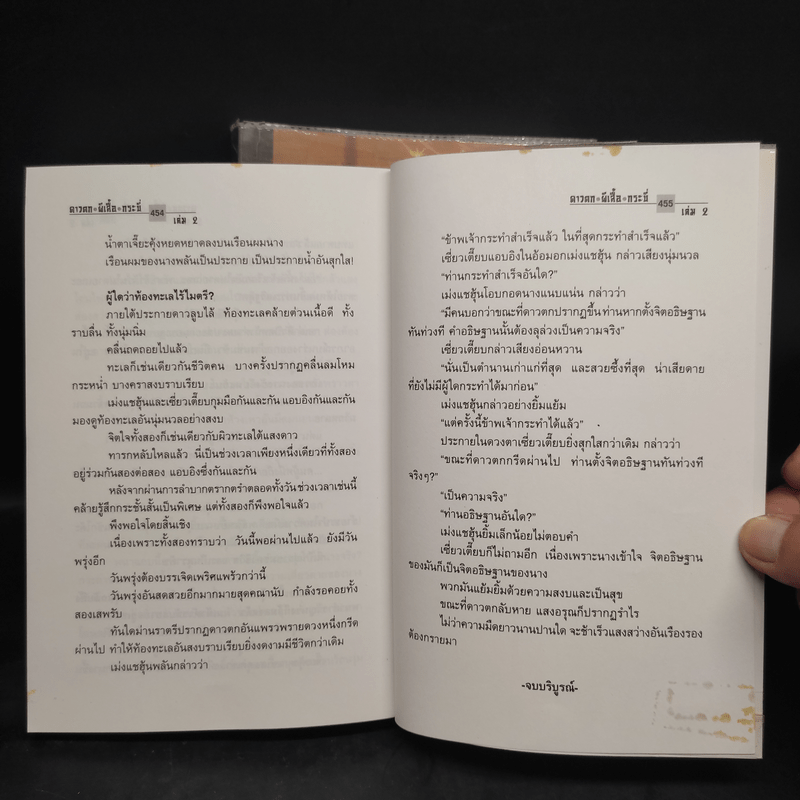 ดาวตก ผีเสื้อ กระบี่ 454 เล่ม 2
น้ำตาเจี๊ยะคุ้งหยดหยาดลงบนเรือนผมนาง
เรือนผมของนางพลันเป็นประกาย เป็นประกายน้ำอันสุกใส!
ผู้ใดว่าท้องทะเลไร้ไมตรี?
ภายใต้ประกายดาวลูบไล้ ท้องทะเลคล้ายต่วนเนื้อดี ทั้ง
ราบลื่น ทั้งนุ่มนิ่ม
คลื่นถดถอยไปแล้ว
ทะเลก็เช่นเดียวกันชีวิตคน บางครั้งปรากฏคลื่นลมโหม
กระหน่ำ บางคราสงบราบเรียบ
เม่งแชฮุ้นและเซี่ยวเตี๊ยบกุมมือกันและกัน แอบอิงกันและกัน
มองดูท้องทะเลอันนุ่มนวลอย่างสงบ
จิตใจทั้งสองก็เช่นเดียวกับผิวทะเลใต้แสงดาว
ทารกหลับใหลแล้ว นี่เป็นช่วงเวลาเพียงหนึ่งเดียวที่ทั้งสอง
อยู่ร่วมกันสองต่อสอง แอบอิงซึ่งกันและกัน
หลังจากผ่านการลำบากตรากตรำตลอดทั้งวันช่วงเวลาเช่นนี้
คล้ายรู้สึกกระชั้นสั้นเป็นพิเศษ แต่ทั้งสองก็พึงพอใจแล้ว
พึงพอใจโดยสิ้นเชิง
เนื่องเพราะทั้งสองทราบว่า วันนี้พอผ่านไปแล้ว ยังมีวัน
พรุ่งอีก
วันพรุ่งต้องบรรเจิดเพริศแพร้วกว่านี้
วันพรุ่งอันสดสวยอีกมากมายสุดคณานับ กำลังรอคอยทั้ง
สองเสพรับ
ทันใดม่านราตรีปรากฏดาวตกอันแพรวพรายดวงหนึ่งกรีด
ผ่านไป ทำให้ท้องทะเลอันสงบราบเรียบยิ่งงดงามมีชีวิตกว่าเดิม
เม่งแชฮุ้นพลันกล่าวว่า
ดาวตก ผีเสื้อ กระบี่ 455 เล่ม 2
“ข้าพเจ้ากระทำสำเร็จแล้ว ในที่สุดกระทำสำเร็จแล้ว”
เซี่ยวเตี๊ยบแอบอิงในอ้อมอกเม่งแชฮุ้น กล่าวเสียงนุ่มนวล
“ท่านกระทำสำเร็จอันใด?”
เม่งแชฮุ้นโอบกอดนางแนบแน่น กล่าวว่า
“มีคนบอกว่าขณะที่ดาวตกปรากฏขึ้น ท่านหากตั้งจิตอธิษฐาน
ทันท่วงที คำอธิษฐานนั้นต้องลุล่วงเป็นความจริง”
เซี่ยวเตี๊ยบกล่าวเสียงอ่อนหวาน
“นั่นเป็นตำนานเก่าแก่ที่สุด และสวยซึ้งที่สุด น่าเสียดาย
ที่ยังไม่มีผู้ใดกระทำได้มาก่อน”
เม่งแชฮุ้นกล่าวอย่างยิ้มแย้ม
“แต่ครั้งนี้ข้าพเจ้ากระทำได้แล้ว”
ประกายในดวงตาเซี่ยวเตี๊ยบยิ่งสุกใสกว่าเดิม กล่าวว่า
“ขณะที่ดาวตกกรีดผ่านไป ท่านตั้งจิตอธิษฐานทันท่วงที
จริงๆ?”
“เป็นความจริง”
“ท่านอธิษฐานอันใด?”
เม่งแชฮุ้นยิ้มเล็กน้อยไม่ตอบคำ
เซี่ยวเตี๊ยบก็ไม่ถามอีก เนื่องเพราะนางเข้าใจ จิตอธิษฐาน
ของมันก็เป็นจิตอธิษฐานของนาง
พวกมันแย้มยิ้มด้วยความสงบและเป็นสุข
ขณะที่ดาวตกลับหาย แสงอรุณก็ปรากฏรำไร
ไม่ว่าความมืดยาวนานปานใด จะช้าเร็วแสงสว่างอันเรืองรอง
ต้องกรายมา
-จบบริบูรณ์-